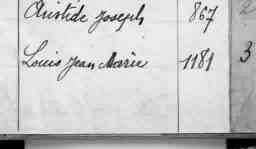 Aristide Joseph 867
Louis Jean Marie 1181 3